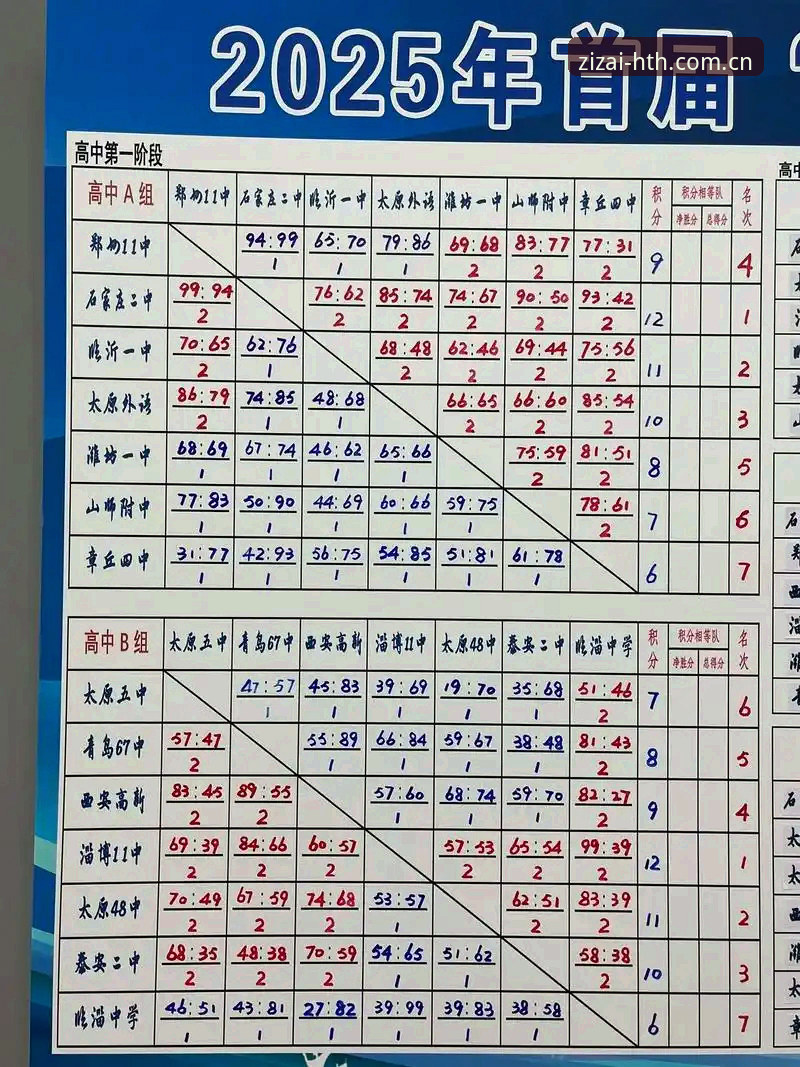 2025年首届
zizai-hth.com.cn
高中第一阶段
高中A组 郑州11中 石家庄二中 临沂一中 太原外语 潍坊一中 山师附中 章丘四中 积分 积分相等队 净胜分 总得分 名次
郑州11中 94:99 1 65:70 1 79:86 1 69:68 2 83:77 2 77:31 2 9 4
石家庄二中 99:94 2 76:62 2 85:74 2 74:67 2 90:50 2 93:42 2 12 1
临沂一中 70:65 2 62:76 1 68:48 2 62:46 2 69:44 2 75:56 2 11 2
太原外语 86:79 2 74:85 1 48:68 1 66:65 2 66:60 2 85:54 2 10 3
潍坊一中 68:69 1 67:74 1 46:62 1 65:66 1 75:59 2 81:51 2 8 5
山师附中 77:83 1 50:90 1 44:69 1 60:66 1 59:75 1 78:61 2 7 6
章丘四中 31:77 1 42:93 1 56:75 1 54:85 1 51:81 1 61:78 1 6 7
高中B组 太原五中 青岛67中 西安高新 淄博11中 太原48中 泰安二中 临淄中学 积分 积分相等队 净胜分 总得分 名次
太原五中 47:57 1 45:83 1 39:69 1 19:70 1 35:68 1 51:46 2 7 6
青岛67中 57:47 2 55:89 1 66:84 1 59:67 1 38:48 1 81:43 2 8 5
西安高新 83:45 2 89:55 2 57:60 1 68:74 1 59:70 1 82:27 2 9 4
淄博11中 69:39 2 84:66 2 60:57 2 57:53 2 65:54 2 99:39 2 12 1
太原48中 70:49 2 67:59 2 74:68 2 53:57 1 62:51 2 83:39 2 11 2
泰安二中 68:35 2 48:38 2 70:59 2 54:65 1 51:62 1 58:38 2 10 3
临淄中学 46:51 1 43:81 1 27:82 1 39:99 1 39:83 1 38:58 1 6 7